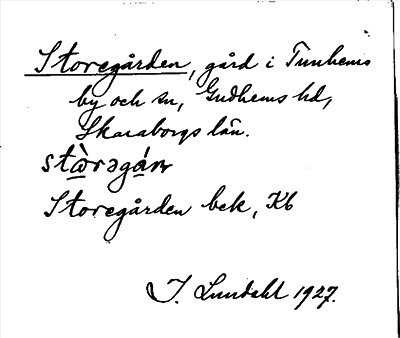 Storegården, gård i Tunhems
by och sn, Gudhems hd,
Skaraborgs län.
stɷ̀rəgán
Storegården bek, Kb
I. Lundahl 1927.